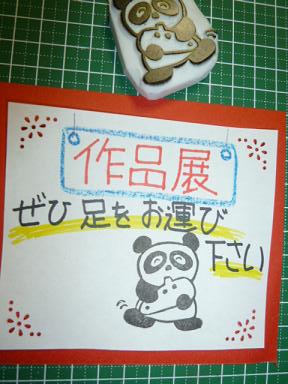 作品展
ぜひ足をお運び
下さい